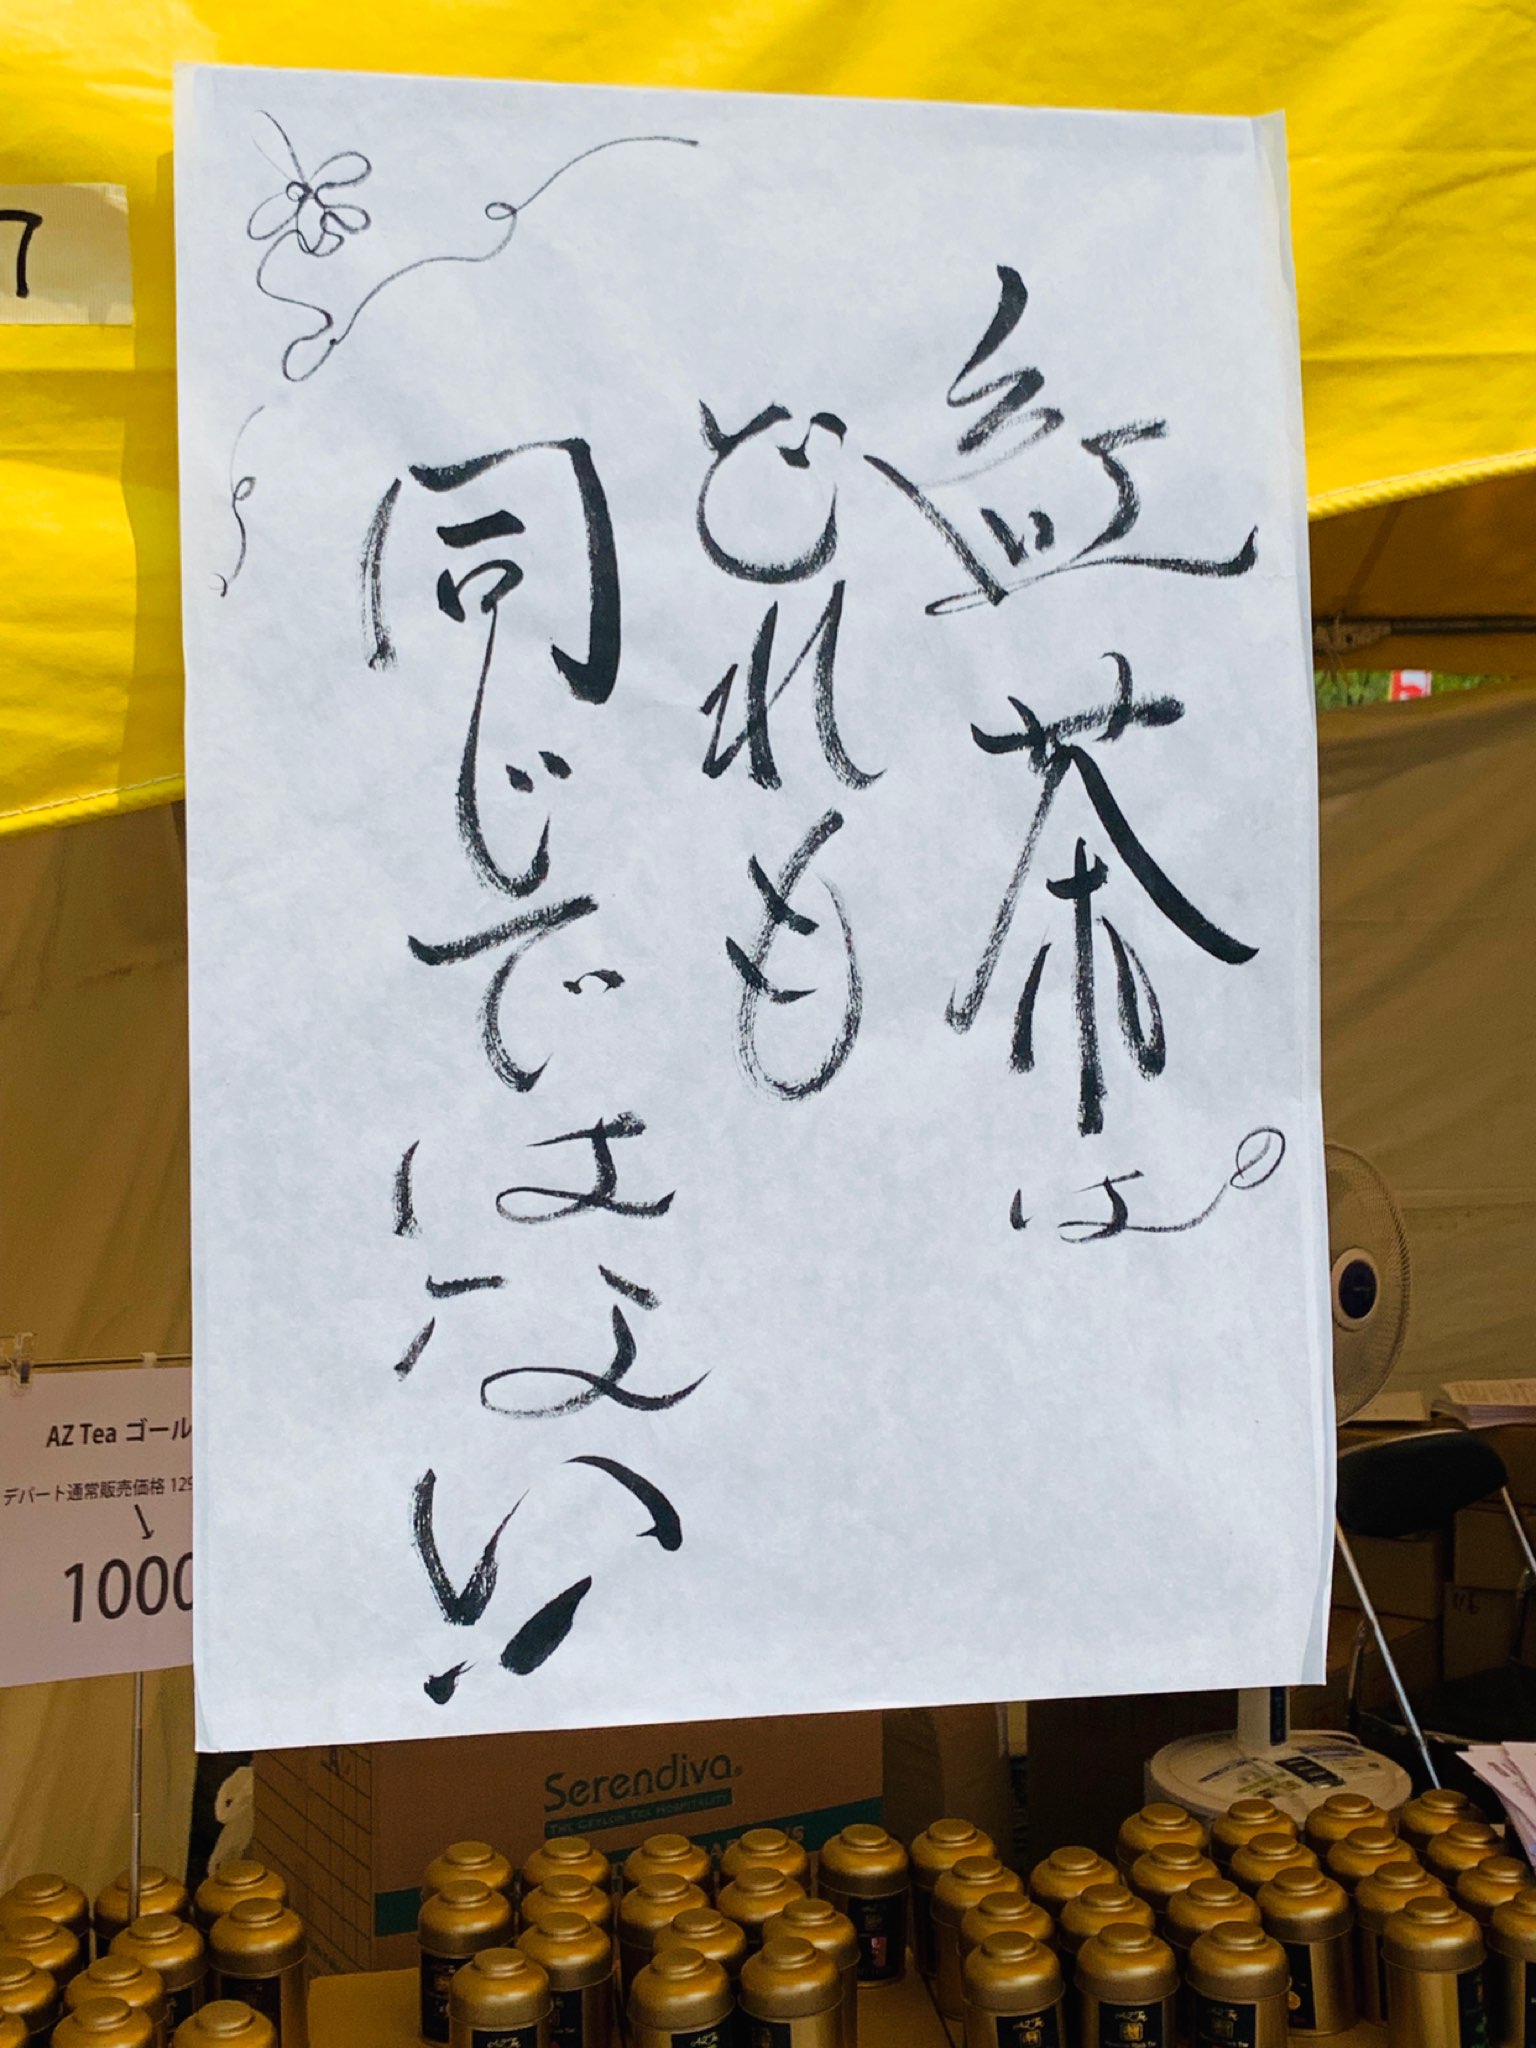 紅茶は
どれも
同じではない!!
7
AZ Tea ゴール
デパート通常販売価格 129
1000
Serendiva®
THE CEYLON TEA HOSPITALITY